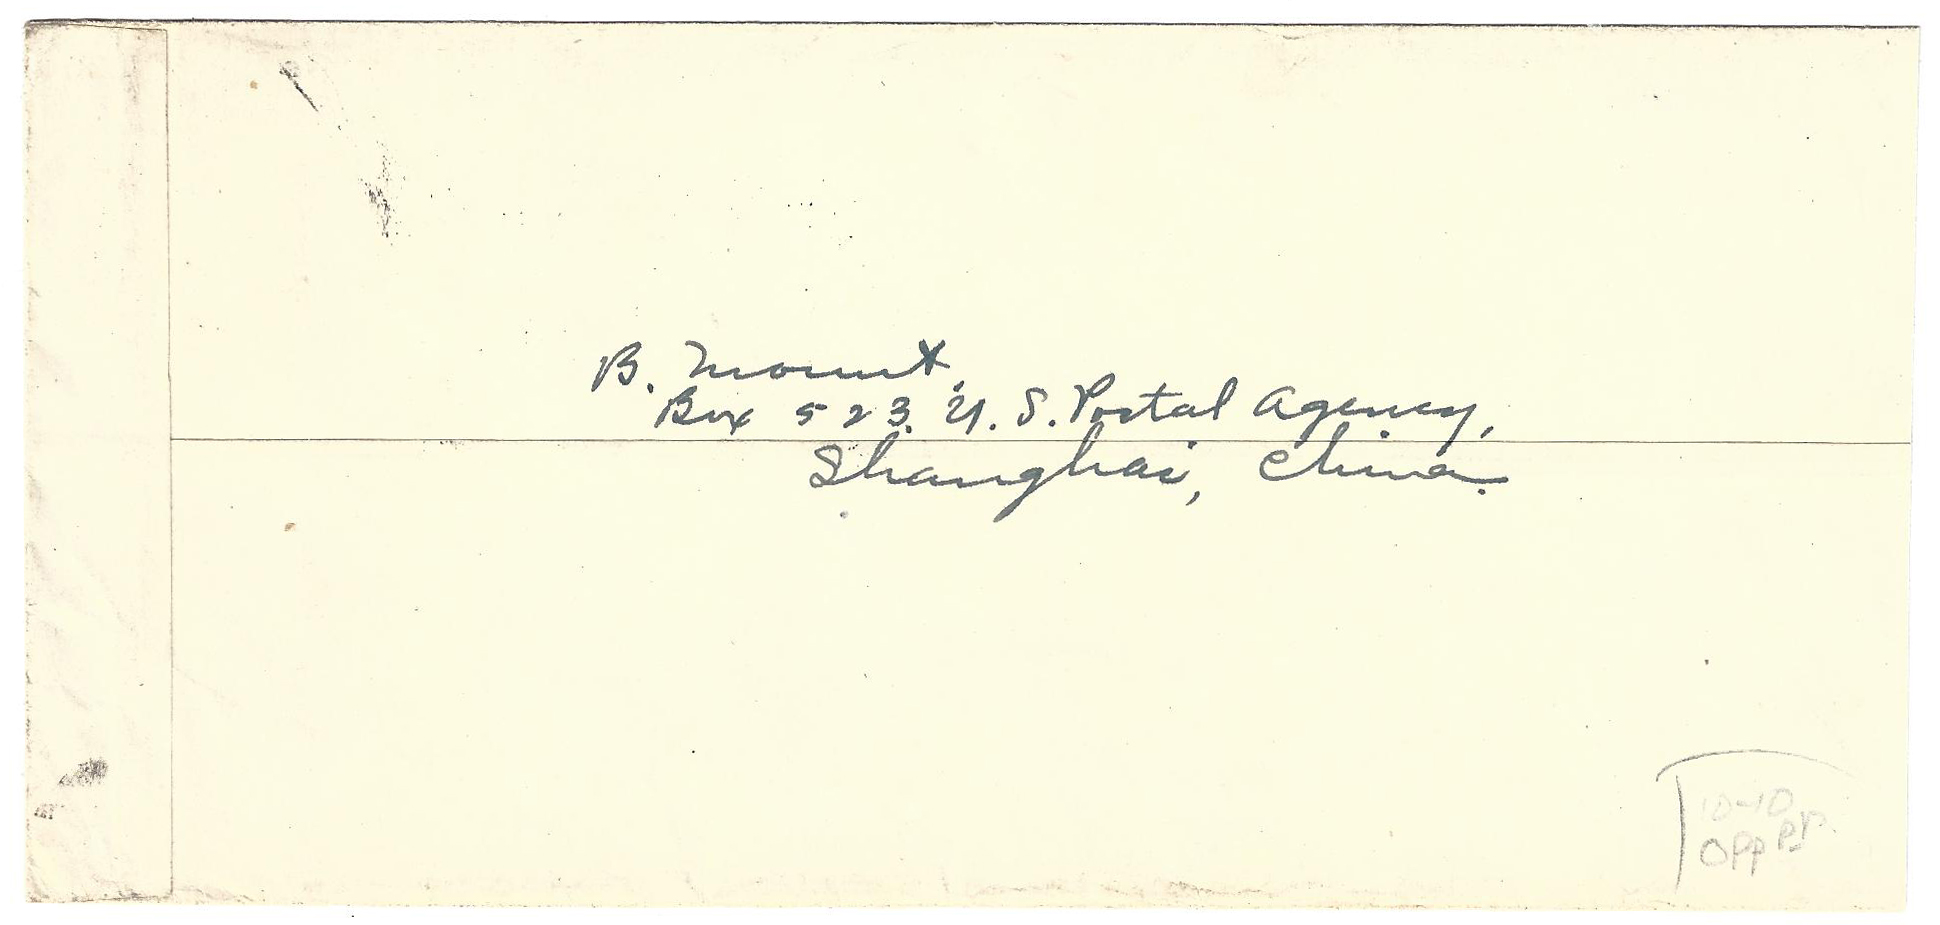 B. Mount.
Box 523. U. S. Postal Agency,
Shanghai, China.
10-10
OPP